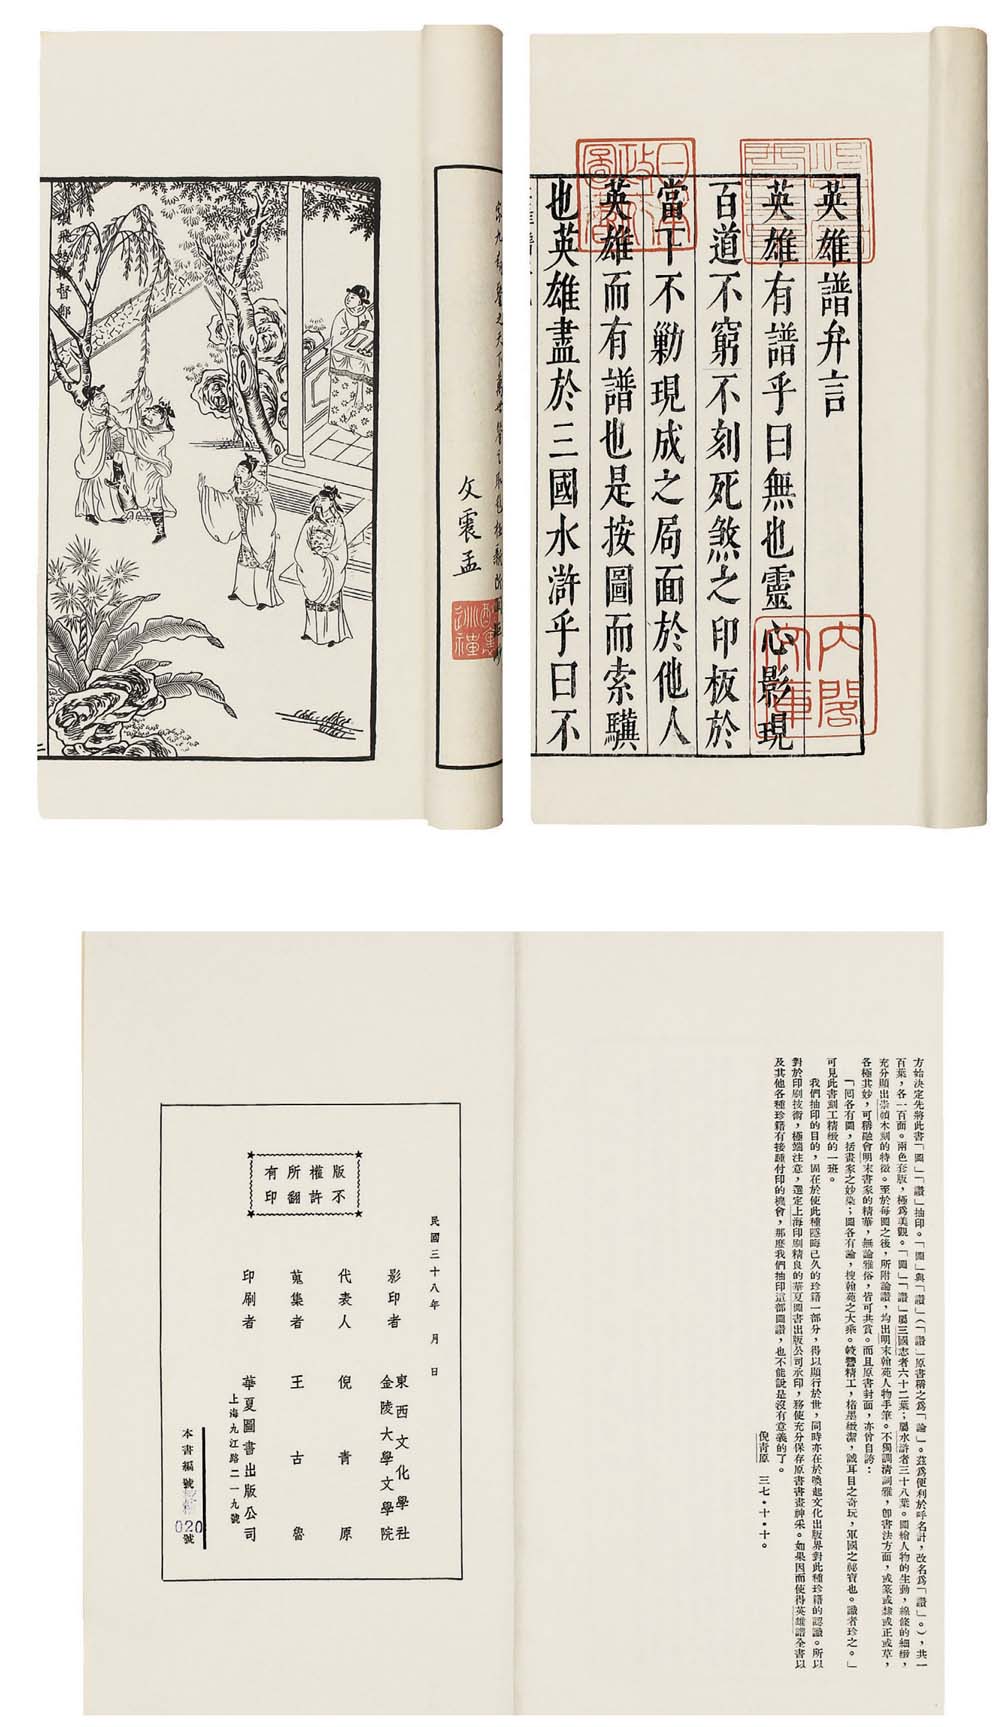 英雄譜弁言
英雄有譜乎曰無也靈心影現
百道不窮不刻死煞之印板於
當下不勦現成之局面於他人
英雄而有譜也是按圖而索驥
也英雄盡於三國水滸乎曰不
日本
政
圖書
內閣
文庫
文震孟
督郵
二
方始決定先將此書「圖」「讚」抽印。「圖」與「讚」(「讚」原書稱之爲「論」。茲爲便利於呼名計，改名爲「讚」。)，共一
百葉，各一百面。兩色套版，極爲美觀。「圖」「讚」屬三國志者六十二葉；屬水滸者三十八葉。圖繪人物的生動，線條的細緻，
充分顯出崇禎木刻的特徵。至於每圖之後，所附論讚，均出明末翰苑人物手筆。不獨詞清詞雅，卽書法方面，或篆或隸或正或草，
各極其妙，可稱融會明末書家的精華，無論雅俗，皆可共賞。而且原書封面，亦曾自誇：
「回各有圖，括畫家之妙染；圖各有論，搜翰苑之大乘。較讐精工，楮墨緻潔，誠耳目之奇玩，軍國之祕寶也。識者珍之。」
可見此書刻工精緻的一斑。
我們抽印的目的，固在於使此種隱晦已久的珍籍一部分，得以顯行於世，同時亦在於喚起文化出版界對此種珍籍的認識。所以
對於印刷技術，極端注意，選定上海印刷精良的華夏圖書出版公司承印，務使充分保存原書書畫神采。如果因而使得英雄譜全書以
及其他各種珍籍有接踵付印的機會，那麽我們抽印這部圖讚，也不能說是沒有意義的了。
倪青原 三七．十．十。
版權所有
不許翻印
民國三十八年 月 日
影印者 東西文化學社
金陵大學文學院
代表人 倪青原
蒐集者 王古魯
印刷者 華夏圖書出版公司
上海九江路二一九號
本書編號 020 號